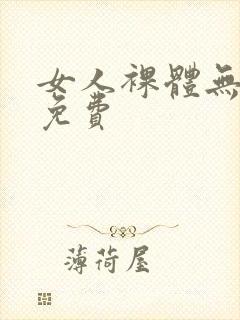 女人裸體無
免費
薄荷屋